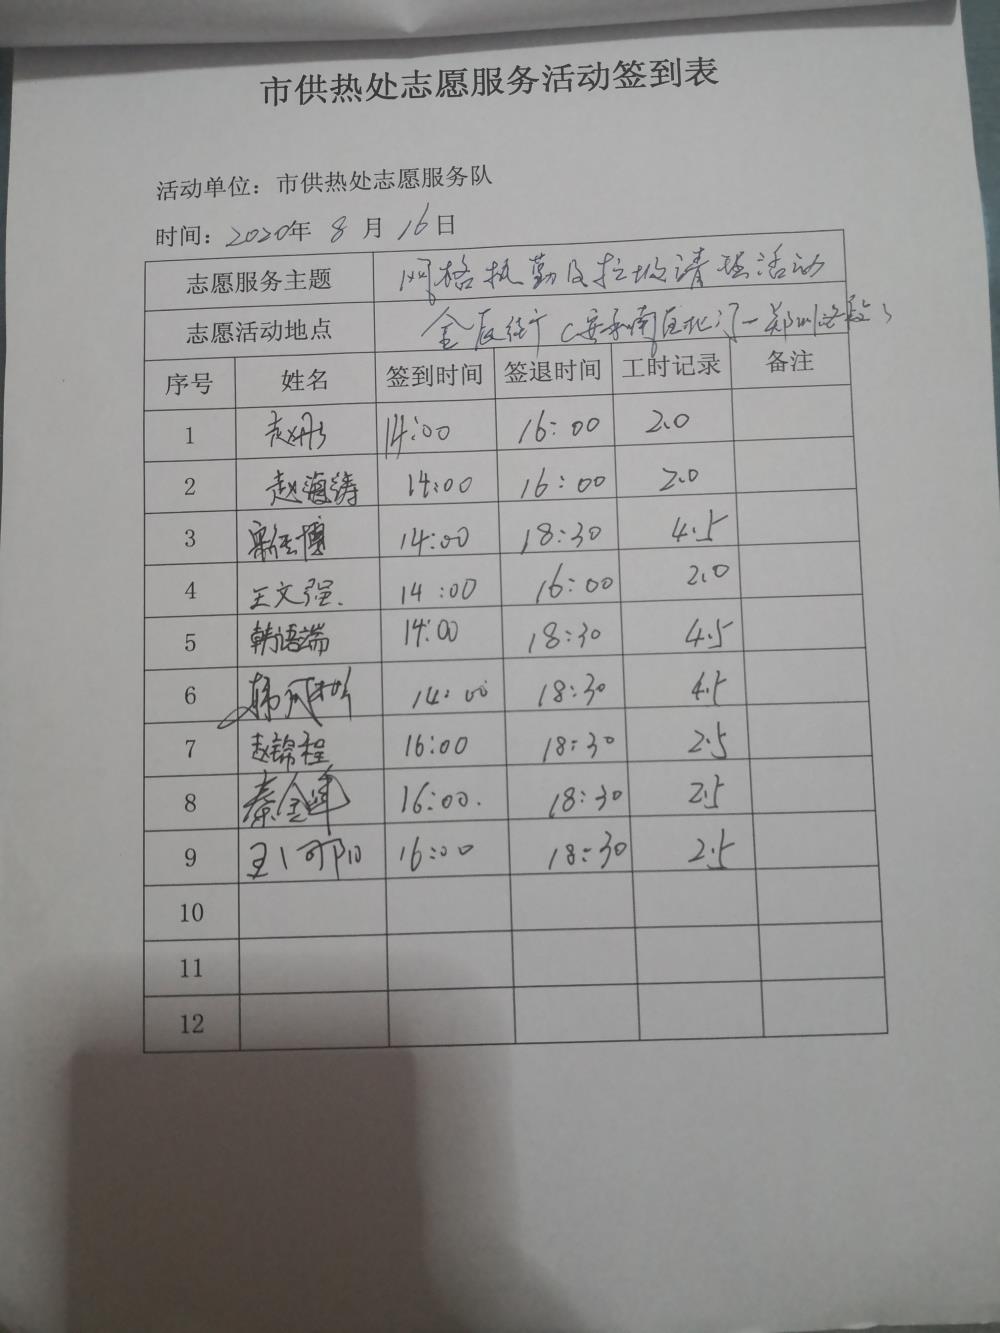 市供热处志愿服务活动签到表
活动单位：市供热处志愿服务队
时间：2020年 8 月 16日
志愿服务主题 网格执勤及垃圾清理活动
志愿活动地点 金辰街（南区北门—郑州路段）
序号 姓名 签到时间 签退时间 工时记录 备注
1 赵彤 14:00 16:00 2.0
2 赵海涛 14:00 16:00 2.0
3 14:00 18:30 4.5
4 王文强. 14:00 16:00 2.0
5 韩语端 14:00 18:30 4.5
6 14:00 18:30 4.5
7 赵锦程 16:00 18:30 2.5
8 秦金军 16:00. 18:30 2.5
9 16:00 18:30 2.5
10
11
12